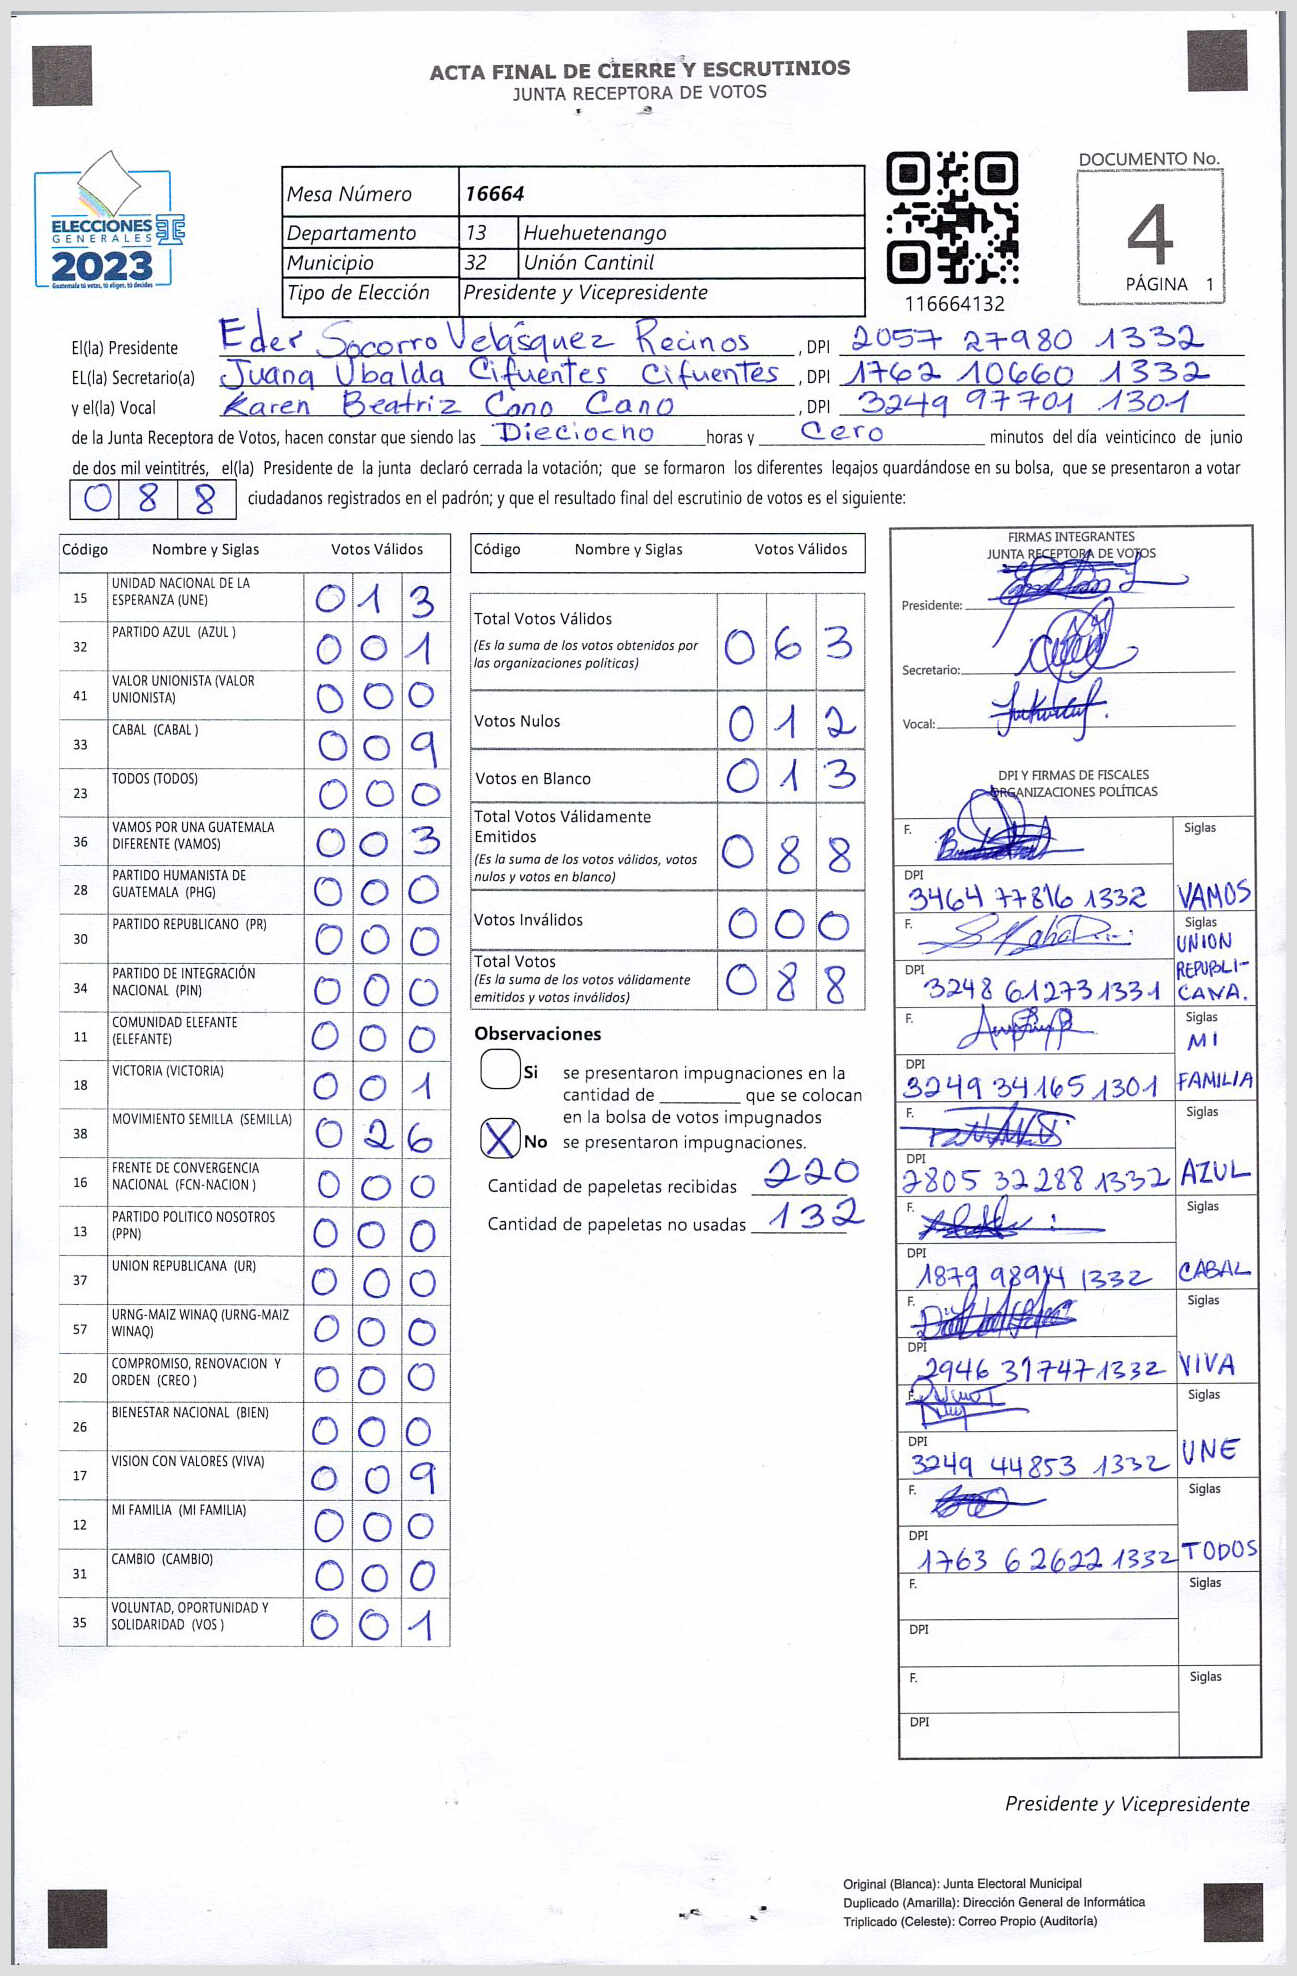 ACTA FINAL DE CIERRE Y ESCRUTINIOS
JUNTA RECEPTORA DE VOTOS
ELECCIONES
GENERALES
2023
Guatemala tú votas, tú eliges, tú decides
Mesa Número 16664
Departamento 13 Huehuetenango
Municipio 32 Unión Cantinil
Tipo de Elección Presidente y Vicepresidente
116664132
DOCUMENTO No.
4
PÁGINA 1
El(la) Presidente Eder Socorro Velásquez Recinos , DPI 2057 27980 1332
EL(la) Secretario(a) Juana Ubalda Cifuentes Cifuentes , DPI 1762 10660 1332
y el(la) Vocal Karen Beatriz Cano Cano , DPI 3249 97701 1301
de la Junta Receptora de Votos, hacen constar que siendo las Dieciocho horas y Cero minutos del día veinticinco de junio
de dos mil veintitrés, el(la) Presidente de la junta declaró cerrada la votación; que se formaron los diferentes legajos guardándose en su bolsa, que se presentaron a votar
088 ciudadanos registrados en el padrón; y que el resultado final del escrutinio de votos es el siguiente:
Código Nombre y Siglas Votos Válidos
15 UNIDAD NACIONAL DE LA ESPERANZA (UNE) 013
32 PARTIDO AZUL (AZUL ) 001
41 VALOR UNIONISTA (VALOR UNIONISTA) 000
33 CABAL (CABAL ) 009
23 TODOS (TODOS) 000
36 VAMOS POR UNA GUATEMALA DIFERENTE (VAMOS) 003
28 PARTIDO HUMANISTA DE GUATEMALA (PHG) 000
30 PARTIDO REPUBLICANO (PR) 000
34 PARTIDO DE INTEGRACIÓN NACIONAL (PIN) 000
11 COMUNIDAD ELEFANTE (ELEFANTE) 000
18 VICTORIA (VICTORIA) 001
38 MOVIMIENTO SEMILLA (SEMILLA) 026
16 FRENTE DE CONVERGENCIA NACIONAL (FCN-NACION ) 000
13 PARTIDO POLITICO NOSOTROS (PPN) 000
37 UNION REPUBLICANA (UR) 000
57 URNG-MAIZ WINAQ (URNG-MAIZ WINAQ) 000
20 COMPROMISO, RENOVACION Y ORDEN (CREO ) 000
26 BIENESTAR NACIONAL (BIEN) 000
17 VISION CON VALORES (VIVA) 009
12 MI FAMILIA (MI FAMILIA) 000
31 CAMBIO (CAMBIO) 000
35 VOLUNTAD, OPORTUNIDAD Y SOLIDARIDAD (VOS ) 001
Código Nombre y Siglas Votos Válidos
Total Votos Válidos 063
(Es la suma de los votos obtenidos por
las organizaciones políticas)
Votos Nulos 012
Votos en Blanco 013
Total Votos Válidamente
Emitidos 088
(Es la suma de los votos válidos, votos
nulos y votos en blanco)
Votos Inválidos 000
Total Votos 088
(Es la suma de los votos válidamente
emitidos y votos inválidos)
Observaciones
Si se presentaron impugnaciones en la
cantidad de ________ que se colocan
en la bolsa de votos impugnados
X No se presentaron impugnaciones.
Cantidad de papeletas recibidas 220
Cantidad de papeletas no usadas 132
FIRMAS INTEGRANTES
JUNTA RECEPTORA DE VOTOS
Presidente:
Secretario:
Vocal:
DPI Y FIRMAS DE FISCALES
ORGANIZACIONES POLÍTICAS
F. Siglas
DPI 3464 77816 1332 VAMOS
F. Siglas UNION REPUBLI-
DPI 3248 61273 1331 CANA.
F. Siglas MI
DPI 3249 34165 1301 FAMILIA
F. Siglas
DPI 2805 32288 1332 AZUL
F. Siglas
DPI 1879 1332 CABAL
F. Siglas
DPI 2946 31747 1332 VIVA
F. Siglas
DPI 3249 44853 1332 UNE
F. Siglas
DPI 1763 62622 1332 TODOS
F. Siglas
DPI
F. Siglas
DPI
Presidente y Vicepresidente
Original (Blanca): Junta Electoral Municipal
Duplicado (Amarilla): Dirección General de Informática
Triplicado (Celeste): Correo Propio (Auditoría)